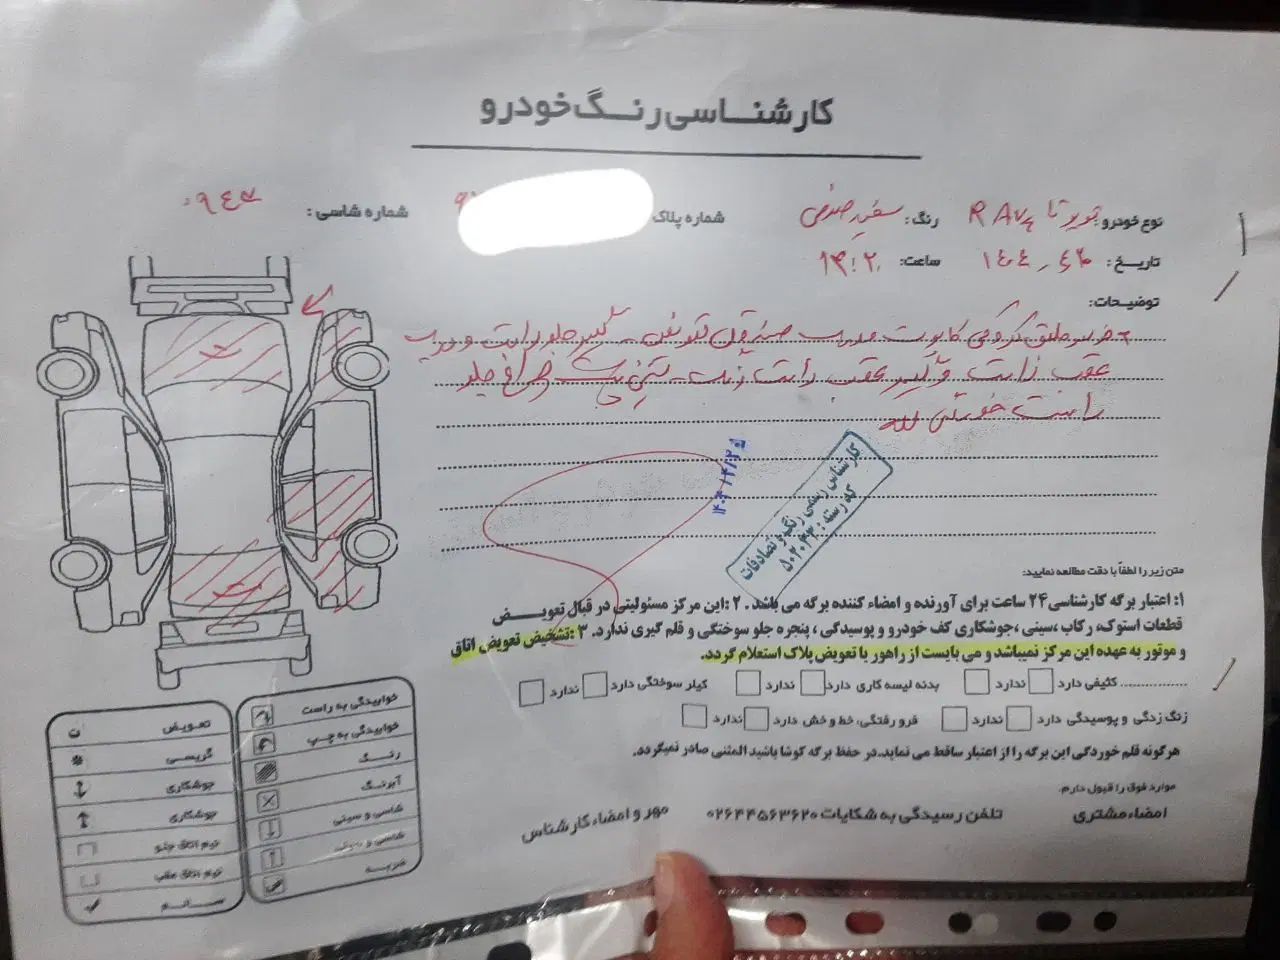 کارشناسی رنگ خودرو
نوع خودرو: تویوتا RAV4 رنگ: سفید صدفی شماره پلاک شماره شاسی:
تاریخ: ساعت: ۱۴:۲۰
توضیحات:
کاپوت صندوق تعویض - گلگیر جلو راست و درب
عقب راست و گلگیر عقب راست رنگ - جلو
راست خوردگی
کارشناس رسمی رنگ و تصادفات
کد رسته: ۵۰۲۰۳۳
متن زیر را لطفاً با دقت مطالعه نمایید:
۱: اعتبار برگه کارشناسی ۲۴ ساعت برای آورنده و امضاء کننده برگه می باشد. ۲: این مرکز مسئولیتی در قبال تعویض
قطعات استوک، رکاب، سینی، جوشکاری کف خودرو و پوسیدگی، پنجره جلو سوختگی و قلم گیری ندارد. ۳: تشخیص تعویض اتاق
و موتور به عهده این مرکز نمیباشد و می بایست از راهور یا تعویض پلاک استعلام گردد.
کثیفی دارد ندارد بدنه لیسه کاری دارد ندارد کیلر سوختگی دارد ندارد
زنگ زدگی و پوسیدگی دارد ندارد فرو رفتگی، خط و خش دارد ندارد
هرگونه قلم خوردگی این برگه را از اعتبار ساقط می نماید.در حفظ برگه کوشا باشید المثنی صادر نمیگردد.
موارد فوق را قبول دارم.
امضاء مشتری تلفن رسیدگی به شکایات ۰۲۶۴۴۵۶۳۶۲۰ مهر و امضاء کارشناس
خوابیدگی به راست
خوابیدگی به چپ
رنگ
آبرنگ
شاسی و سینی
شاسی و
ضربه
تعویض ت
گریسی
جوشکاری
جوشکاری
نیم اتاق جلو
نیم اتاق عقب
سالم